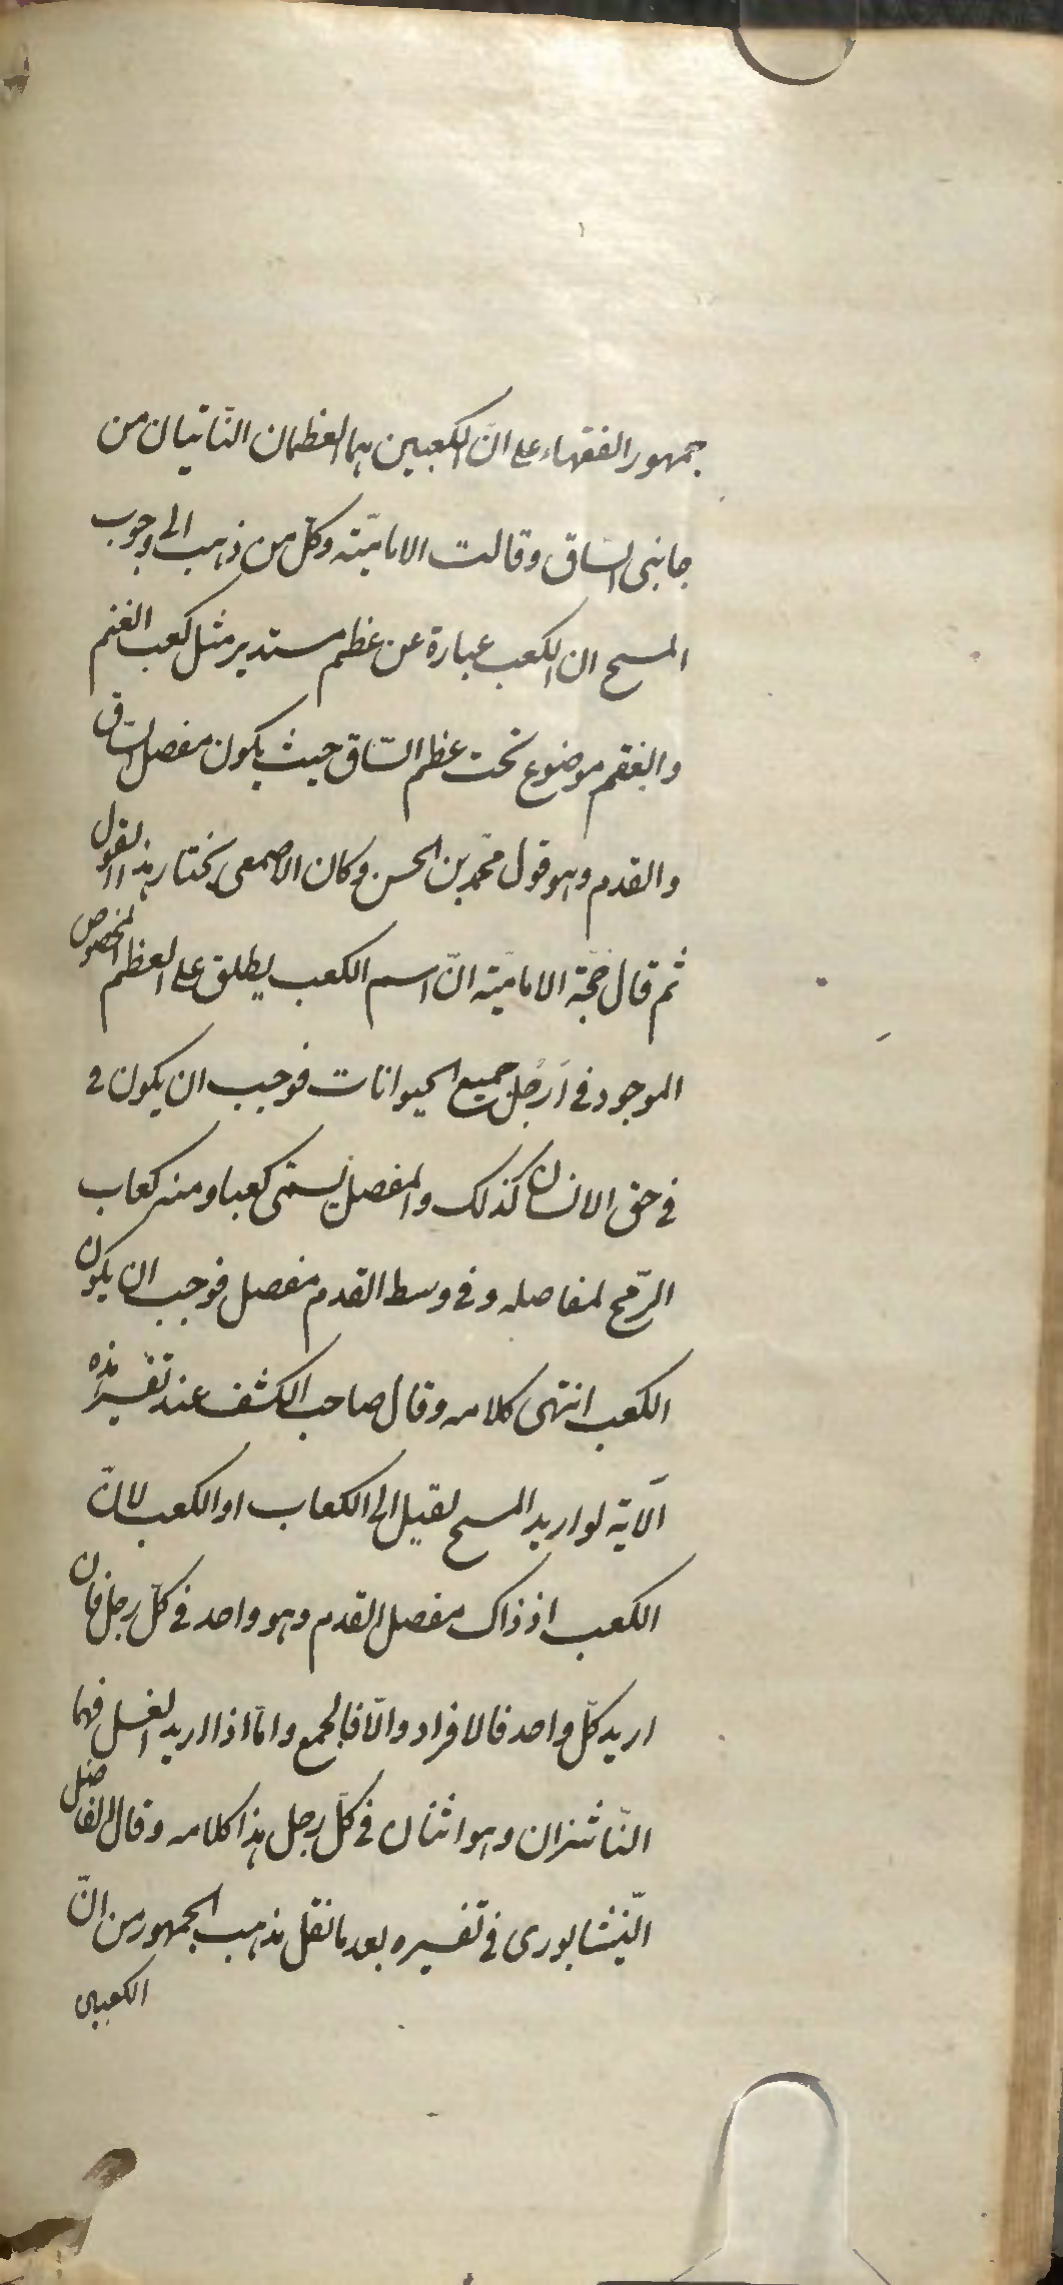 جمهور الفقهاء على انّ الكعبين هما العظمان الناتيان من
جانبى الساق وقالت الاماميّة وكلّ من ذهب الى وجوب
المسح ان الكعب عبارة عن عظم مستدير مثل كعب الغنم
والبقر موضوع تحت عظم السّاق حيث يكون مفصل السّاق
والقدم وهو قول محمّد بن الحسن وكان الاصمعى يختار هذا القول
ثم قال حجّة الاماميّة انّ اسم الكعب يطلق على العظم المخصوص
الموجود فى اَرْجُل جميع الحيوانات فوجب ان يكون فى
فى حق الانسان كذلك والمفصل يسمّى كعبا ومنه كعاب
الرّمح لمفاصله وفى وسط القدم مفصل فوجب ان يكون
الكعب انتهى كلامه وقال صاحب الكشف عند تفسير هذه
الآية لو اريد المسح لقيل الى الكعاب او الكعب لانّ
الكعب اذ ذاك مفصل القدم وهو واحد فى كلّ رجل فان
اريد كلّ واحد فالافراد والّا فالجمع وامّا اذا اريد الغسل فهما
النّاشزان وهو اثنان فى كلّ رجل هذا كلامه وقال الفاضل
النّيشابورى فى تفسيره بعد ما نقل مذهب الجمهور من انّ
الكعبين